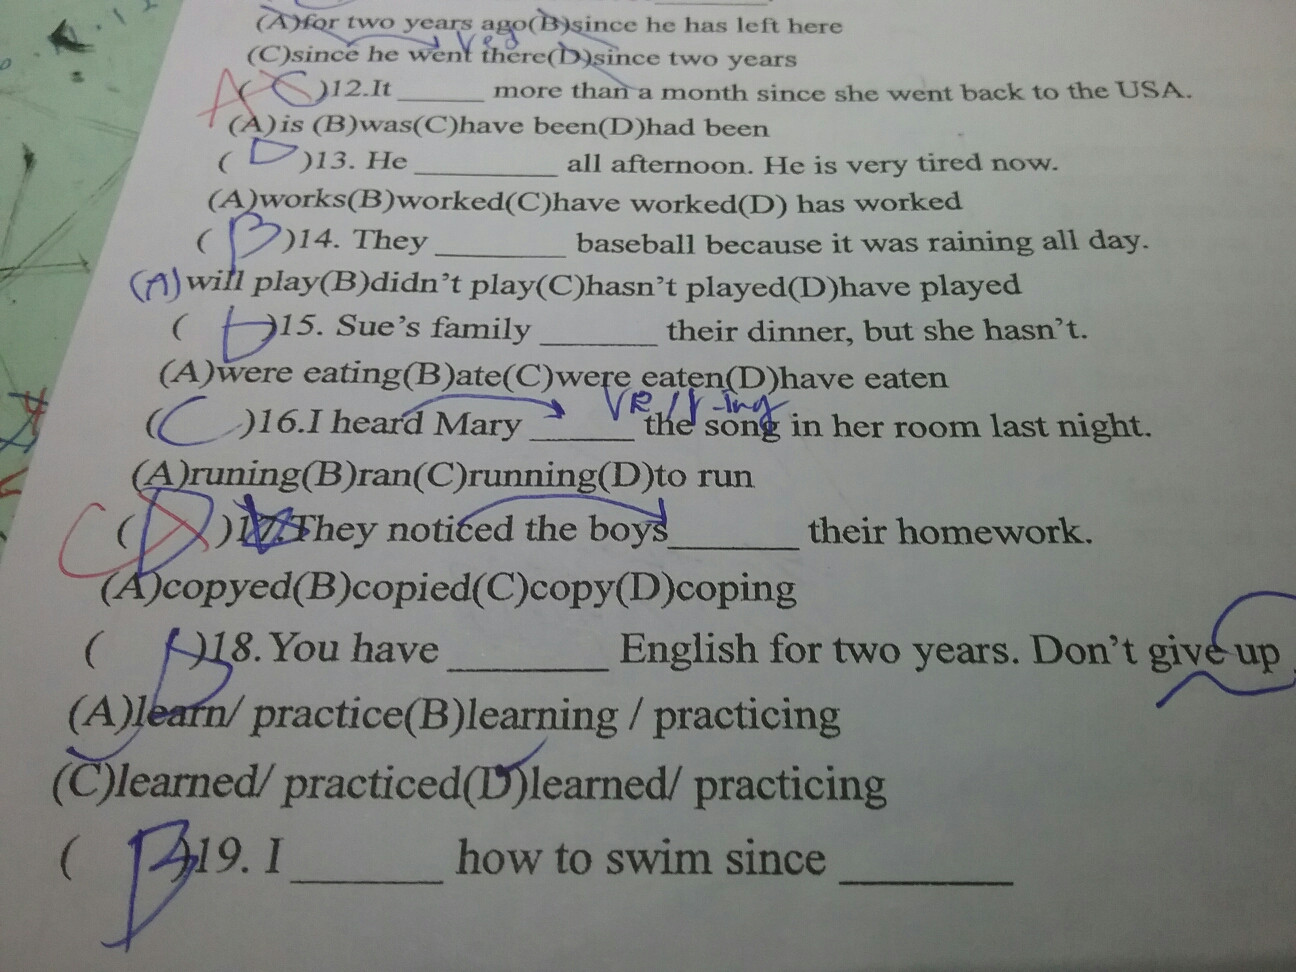 (A)for two years ago(B)since he has left here
Ved
(C)since he went there(D)since two years
A ( C )12.It ______ more than a month since she went back to the USA.
(A)is (B)was(C)have been(D)had been
( D )13. He __________ all afternoon. He is very tired now.
(A)works(B)worked(C)have worked(D) has worked
( B )14. They _________ baseball because it was raining all day.
(A) will play(B)didn't play(C)hasn't played(D)have played
( D )15. Sue's family ________ their dinner, but she hasn't.
(A)were eating(B)ate(C)were eaten(D)have eaten
VR / V-ing
( C )16.I heard Mary _______ the song in her room last night.
(A)runing(B)ran(C)running(D)to run
C ( D )17.They noticed the boys________ their homework.
(A)copyed(B)copied(C)copy(D)coping
( )18. You have _________ English for two years. Don't give up
(A)learn/ practice(B)learning / practicing
(C)learned/ practiced(D)learned/ practicing
( B )19. I ________ how to swim since _________